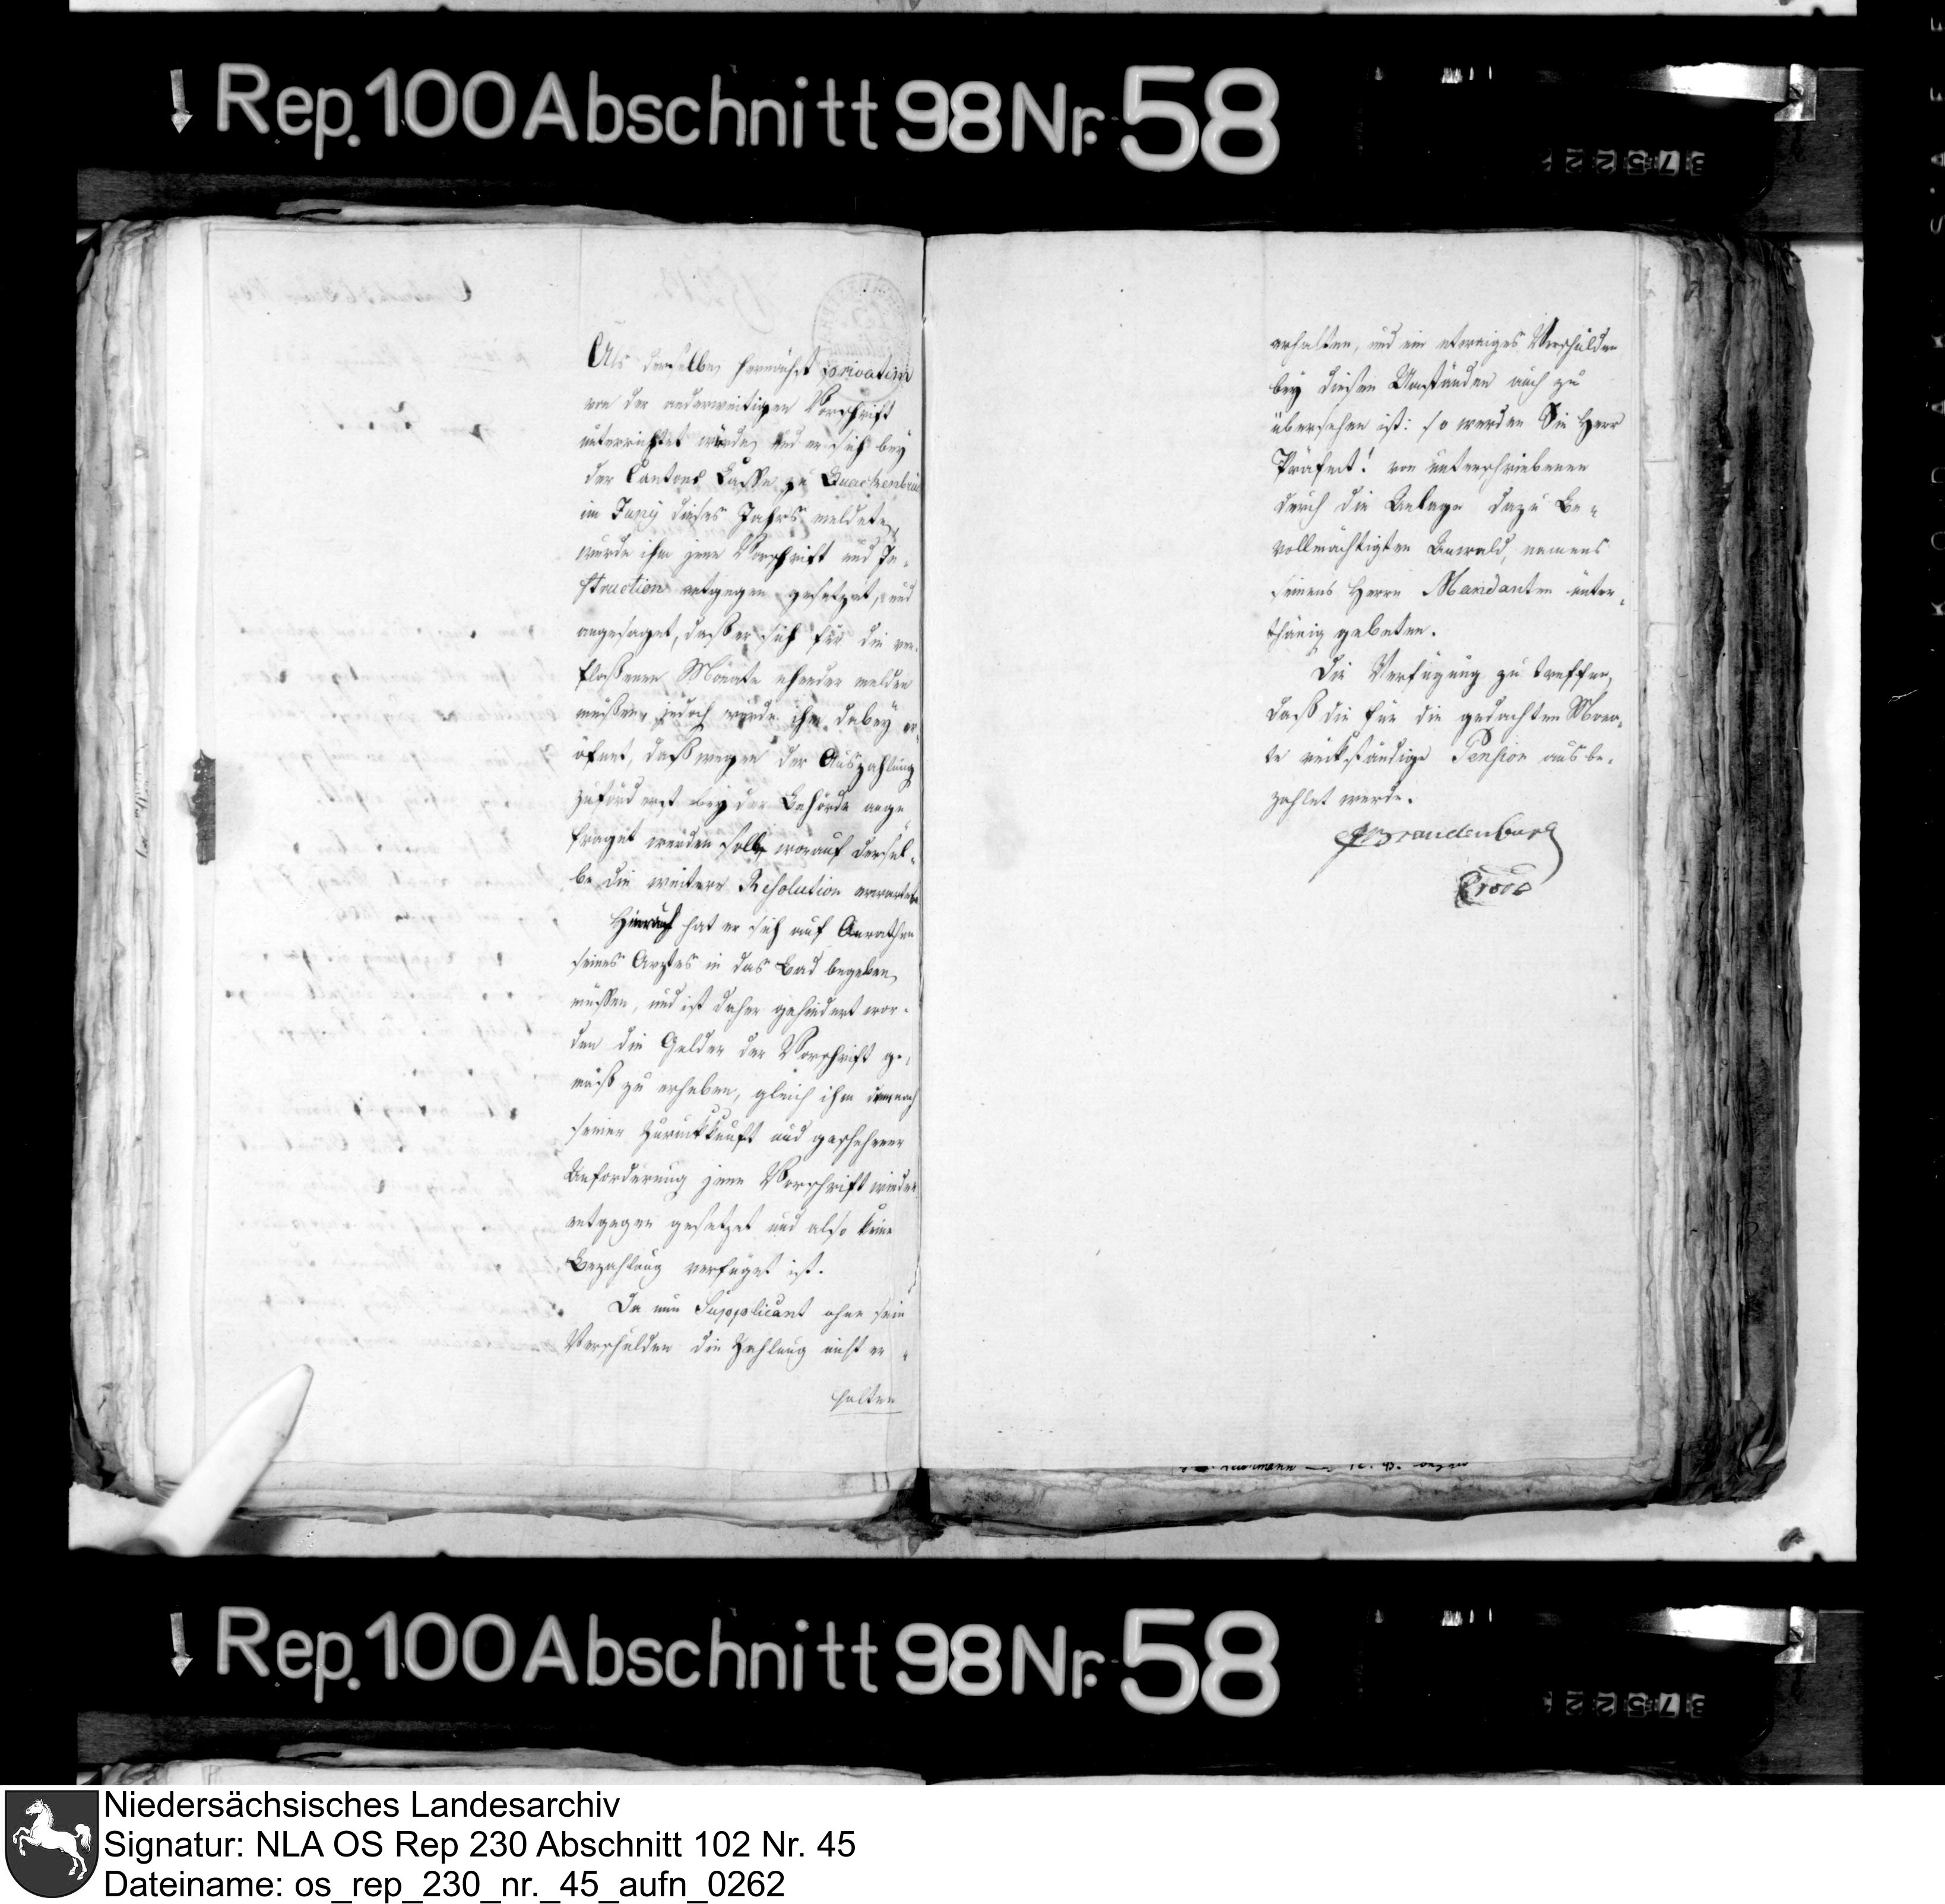 Rep. 100 Abschnitt 98 Nr. 58
Als derselbe hernächst privatim
von der anderweitigen Vorschrift
unterrichtet wurde, und er sich bey
der Cantons Casse zu Quackenbrück
im Juny dieses Jahrs meldete,
wurde ihm jene Vorschrift und In-
struction entgegen gesetzet, und
angesaget, daß er sich für die ver-
floßenen Monate ehender melden
müßen, jedoch wurde ihm dabey er-
öfnet, daß wegen der Auszahlung
zuförderst bey der Behörde ange
fraget werden solle, worauf dersel-
be die weitere Resolution erwartete
Hierauf hat er sich auf Anrathen
seines Arztes in das Bad begeben
müssen, und ist daher gehindert wor-
den die Gelder der Vorschrift ge-
mäß zu erheben, gleich ihm demnach
seiner Zurückkunft und geschehener
Anforderung jene Vorschrift wieder
entgegen gesetzet und also keine
Bezahlung verfüget ist.
Da nun Supplicant ohne sein
Verschulden die Zahlung nicht er-
halten
erhalten, und ein etwaiges Verschulden
bey diesen Umständen auch zu
übersehen ist: so werden Sie Herr
Präfect! von unterschriebenen
durch die Anlage dazu Be-
vollmächtigten Anwald, namens
seines Herrn Mandanten unter-
thänig gebeten.
Die Verfügung zu treffen,
daß die für die gedachten Mona-
te rückständige Pension ausbe-
zahlet werde.
Brandenburg
Rep. 100 Abschnitt 98 Nr. 58
Niedersächsisches Landesarchiv
Signatur: NLA OS Rep 230 Abschnitt 102 Nr. 45
Dateiname: os_rep_230_nr._45_aufn_0262